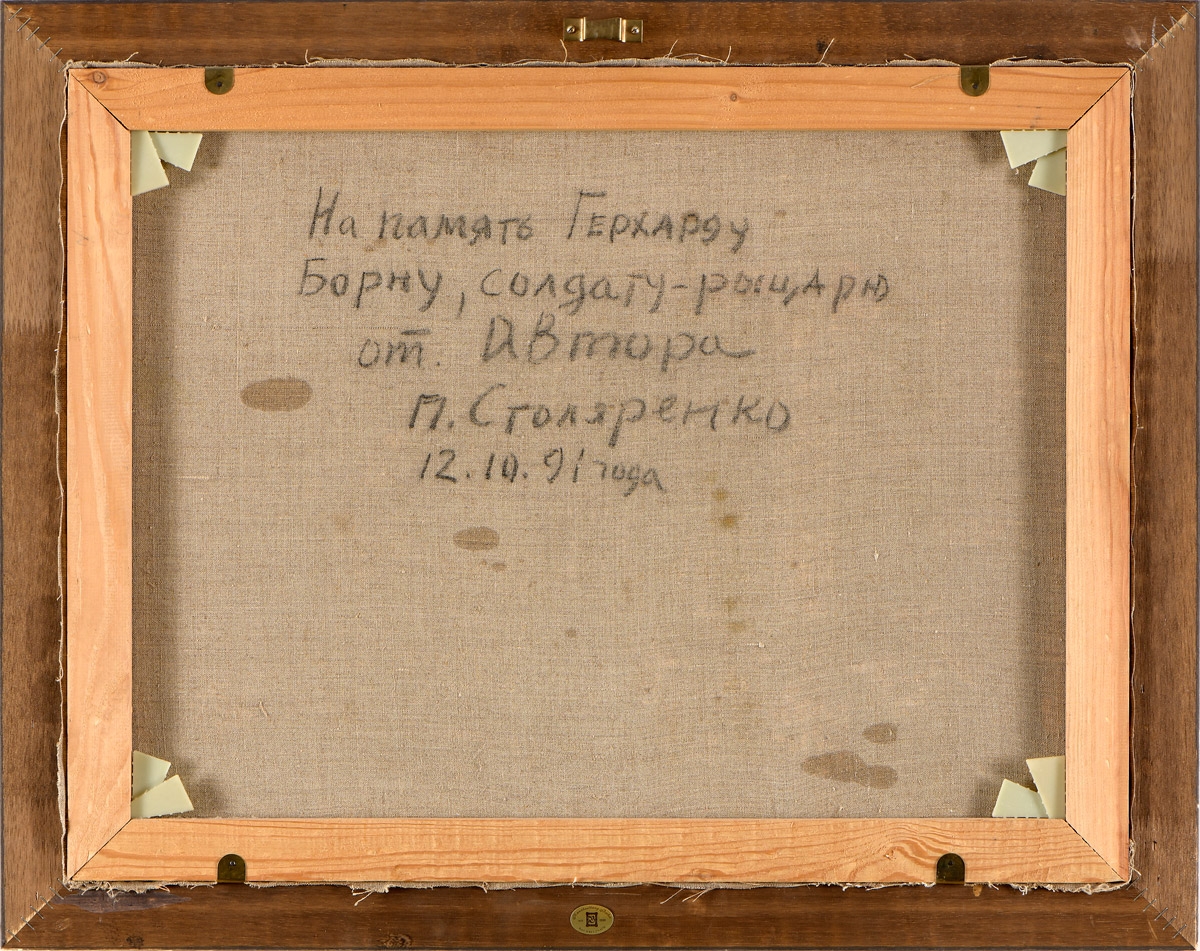 На память Герхарду
Борну, солдату-рыцарю
от. Автора
П. Столяренко
12.10.91 года